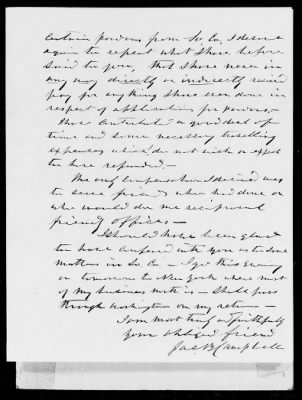 certain pardons from So Ca, I desire
again to repeat what I have before
said to you, that I have never in
any way directly or indirectly recived
pay for anything I have ever done in
respect of applications for pardons,—
I have contributed a good deal of
time and some necessary travelling
expenses which I do not wish or expect
to have refunded.—
The only compensation I desired was
to serve friends who had done or
who would do me reciprocal
friendly offices—
I should have been glad
to have confered with you as to some
matters in So Ca — I go this evening
or tomorrow to New York where most
of my business matter is — Shall pass
through Washington on my return—
I am most truly & faithfully
your obliged friend
Jas B Campbell